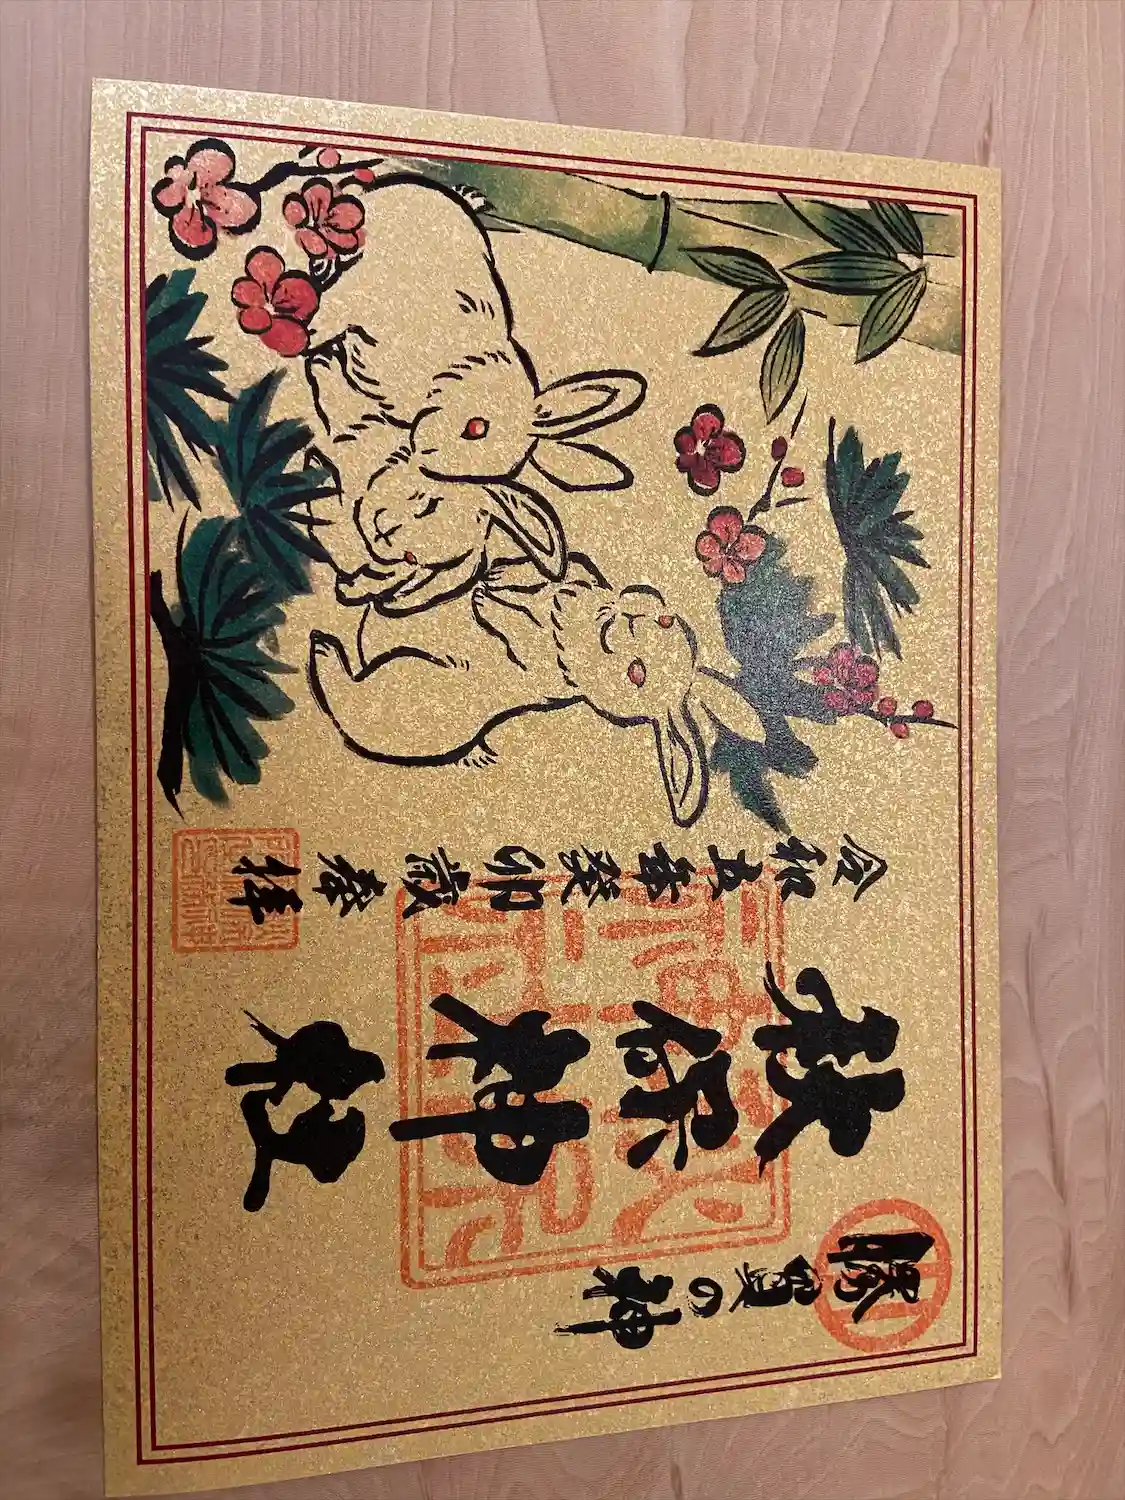 勝負の神
秋保神社
令和五年癸卯歳奉拝